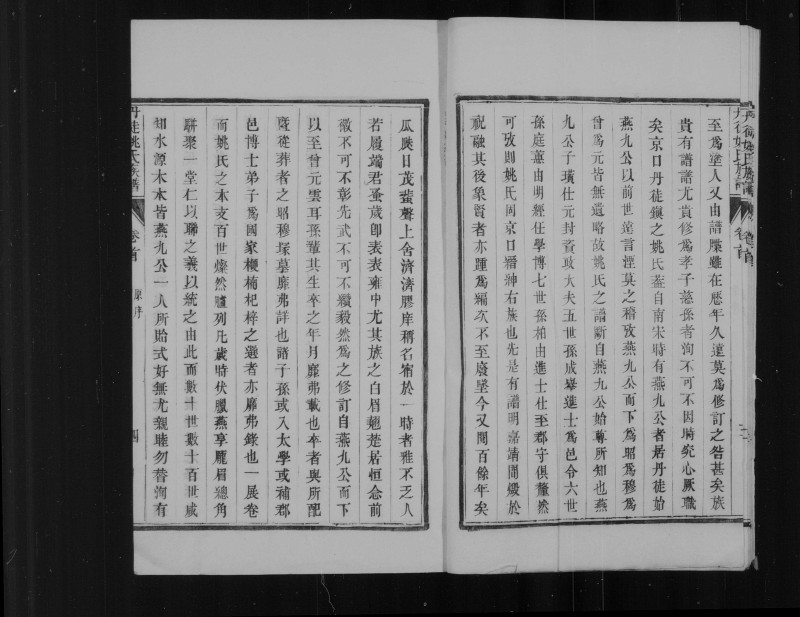 至爲塗人又由譜牒雖在歷年久遠莫爲修訂之咎甚矣族
貴有譜譜尤貴修爲孝子慈孫者洵不可不因時究心厥職
矣京口丹徒鎭之姚氏葢自南宋時有燕九公者居丹徒始
燕九公以前世遠言湮莫之稽攷燕九公而下爲昭爲穆爲
曾爲元皆無遺略故姚氏之譜斷自燕九公始尊所知也燕
九公子璜仕元封資政大夫五世孫成舉進士爲邑令六世
孫庭蕙由明經任學博七世孫柏由進士仕至郡守俱釐然
可攷則姚氏固京口縉紳右族也先是有譜明嘉靖間燬於
祝融其後象賢者亦踵爲編次不至廢墜今又閱百餘年矣
瓜瓞日茂蜚聲上舍濟濟膠庠稱名宿於一時者雅不乏人
若履端君蚤歲卽表表雍中尤其族之白眉翹楚居恒念前
徽不可不彰先武不可不纘毅然爲之修訂自燕九公而下
以至曾元雲耳孫籍其生卒之年月靡弗載也卒者與所配
曁從葬者之昭穆塚墓靡弗詳也譜子孫或入太學或補郡
邑博士弟子爲國家楩楠杞梓之選者亦靡弗錄也一展卷
而姚氏之本支百世燦然臚列凡歲時伏臘燕享龐眉總角
駢聚一堂仁以聯之義以統之由此而數十世數十百世咸
知水源木本皆燕九公一人所貽式好無尤親睦勿替洵有
丹徒姚氏族譜
卷首
原序
四